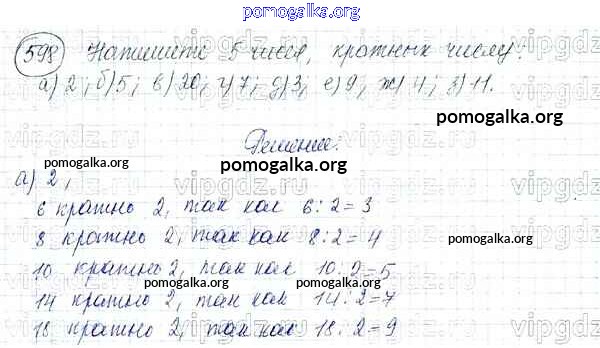 pomogalka.org
598 Напишите 5 чисел, кратных числу:
а) 2; б) 5; в) 20; г) 7; д) 3; е) 9; ж) 4; з) 11.
Решение:
pomogalka.org pomogalka.org pomogalka.org
а) 2;
6 кратно 2, так как 6:2=3
8 кратно 2, так как 8:2=4
pomogalka.org pomogalka.org
10 кратно 2, так как 10:2=5
pomogalka.org pomogalka.org
14 кратно 2, так как 14:2=7
18 кратно 2, так как 18:2=9
pomogalka.org pomogalka.org